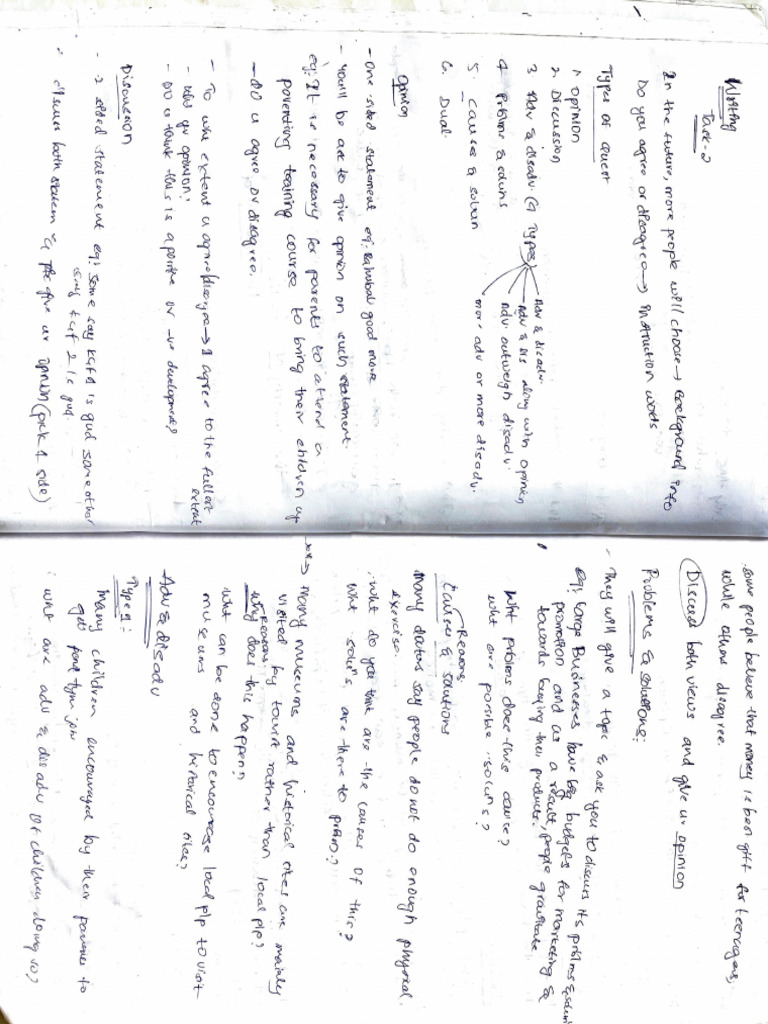 Writing
Task-2
In the future, more people will choose → Background info
Do you agree or disagree → instruction words
Types of quest
1. opinion
2. Discussion
3. Adv & disadv. (4 Types)
Adv & disadv.
Adv & dis along with opinion
Adv. outweigh disadv.
more adv or more disadv.
4. Problms & solns
5. causes & soluin
6. Dual.
Opinion
- one sided statement eg: good move
- You'll be ask to give opinion on such statement.
eg: It is necessary for parents to attend a
parenting training course to bring their children up
- do u agree or disagree.
- To what extent u agree/disagree → I agree to the fullest
extent
- ur opinion?
- Do u think this is a positive or -ve development?
Discussion
- 2 sided statement eg: some say KGF 1 is gud some other
say KGF 2 is gud.
discuss both statem & give ur opinion (pick 1 side)
some people believe that money is best gift for teenagers,
while others disagree.
Discuss both views and give ur opinion
Problems & solutions:
- They will give a topic & ask you to discuss its prblms & soluns
eg: Large Businesses have big budgets for marketing &
promotion and as a result, people gravitate
towards buying their products.
What prblms does this cause?
what are possible soluns?
Reasons
Causes & solutions
Many doctors say people do not do enough physical
exercise.
. what do you think are the causes of this?
what soluns, are there to prblm?
→ Many museums and historical sites are mainly
visited by tourist rather than local plp?
Reasons
Why does this happen?
what can be done to encourage local plp to visit
museums and historical sites?
Adv & disadv
Type 1:
Many children encouraged by their parents to
get part tym job
what are adv & disadv of children doing so?